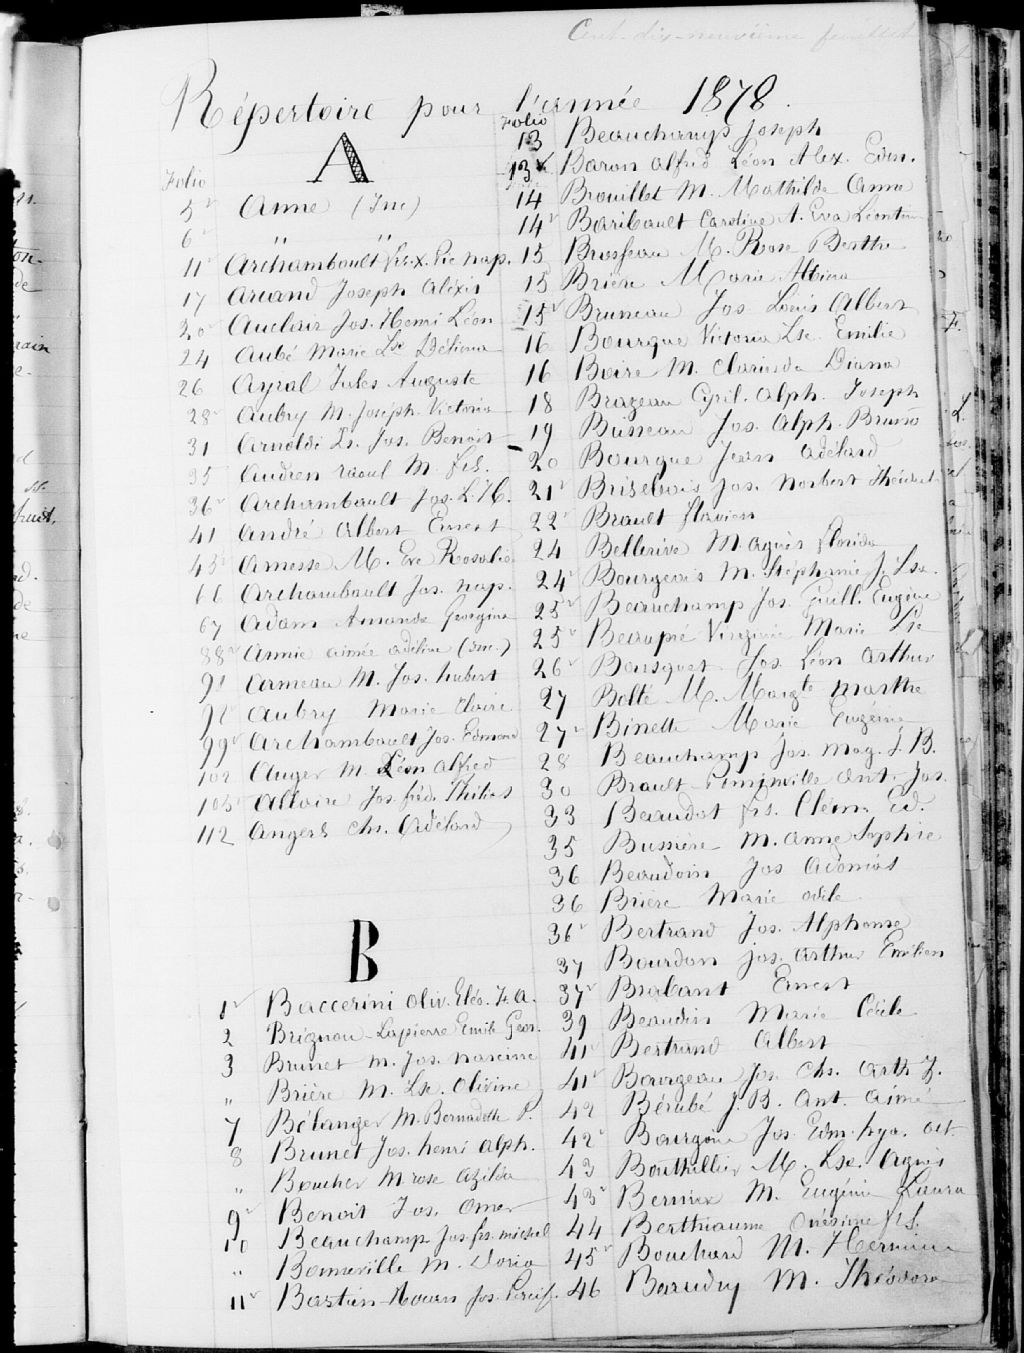 Cent-dix-neuvième feuillet
Répertoire pour l'année 1878.
A
Folio
5v Anne (Inc)
6v " "
11v Archambault Frs. X. Pie Nap.
17 Arcand Joseph Alexis
20v Auclair Jos. Henri Léon
24 Aubé Marie Lse Délima
26 Ayral Jules Auguste
28v Aubry M. Joseph Victoria
31 Arnoldi Ls. Jos. Benoit
35 Audren Raoul M. frs.
36v Archambault Jos. L. H.
41 André Albert Ernest
45v Amesse M. Eve Rosalie
66 Archambault Jos. Nap.
67 Adam Amanda Georgina
88v Annie Aimée Adéline (Inc.)
91 Arneau M. Jos. hubert
92 Aubry Marie Claire
99v Archambault Jos. Edmond
102 Auger M. Léon Alfred
105v Allaire Jos. fred.
112 Angers Chs. Adélard
B
1v Baccerini Oliv. Eléo. F. A.
2 Brignon-Lapierre Emile Geor.
3 Brunet M. Jos. Narcisse
" Brière M. Lse. Olivine
7 Bélanger M. Bernadette P.
8 Brunet Jos. henri Alph.
" Boucher M rose Azilda
9v Benoit Jos. Omer
10 Beauchamp Jos. frs. michel
" Bonneville M. Doria
11v Bastien Nouan Jos.
Folio
13 Beauchamp Joseph
13v Baron Alfred Léon Alex. Edm.
14 Brouillet M. Mathilde Anna
14v Baribault Caroline A. Eva Léontine
15 Brosseau M. Rose Berthe
15 Brière Marie Albina
15v Bruneau Jos Louis Albert
16 Bourque Victoria Lse Emilie
16 Boire M. Clarinda Diana
18 Brazeau Cyril. Alph. Joseph
19 Busseau Jos. Alph. Bruno
20 Bourque Jean Adélard
21v Brisebois Jos. Norbert
22v Brault Flavien
24 Bellerive M. Agnès Florida
24v Bourgeois M. Stéphanie J. Lse.
25v Beauchamp Jos. Guill. Eugène
25v Beaupré Virginie Marie Lse
26v Bousquet Jos. Léon Arthur
27 Bolté M. Margte Marthe
27v Binette Marie Eugénie
28 Beauchamp Jos. Mag. J. B.
30 Brault-Pominville Ant. Jos.
33 Beaudot frs. Clém. Ed.
35 Bussière M. Anne Sophie
36 Beaudoin Jos Adonias
36 Brière Marie Odile
36v Bertrand Jos. Alphonse
37 Bourdon Jos. Arthur Emilien
37v Brabant Ernest
39 Beaudin Marie Cécile
41v Bertrand Albert
41v Bourgeau Jos. Chs. Arth. Z.
42 Bérubé J. B. Ant. Aimé
42v Bourgoin Jos. Edm. hya. Oct.
43 Bouthillier M. Lse. Agnès
43v Bernier M. Eugénie Laura
44 Berthiaume Onésime frs.
45v Bouchard M. Hermine
46 Beaudry M. Théodora